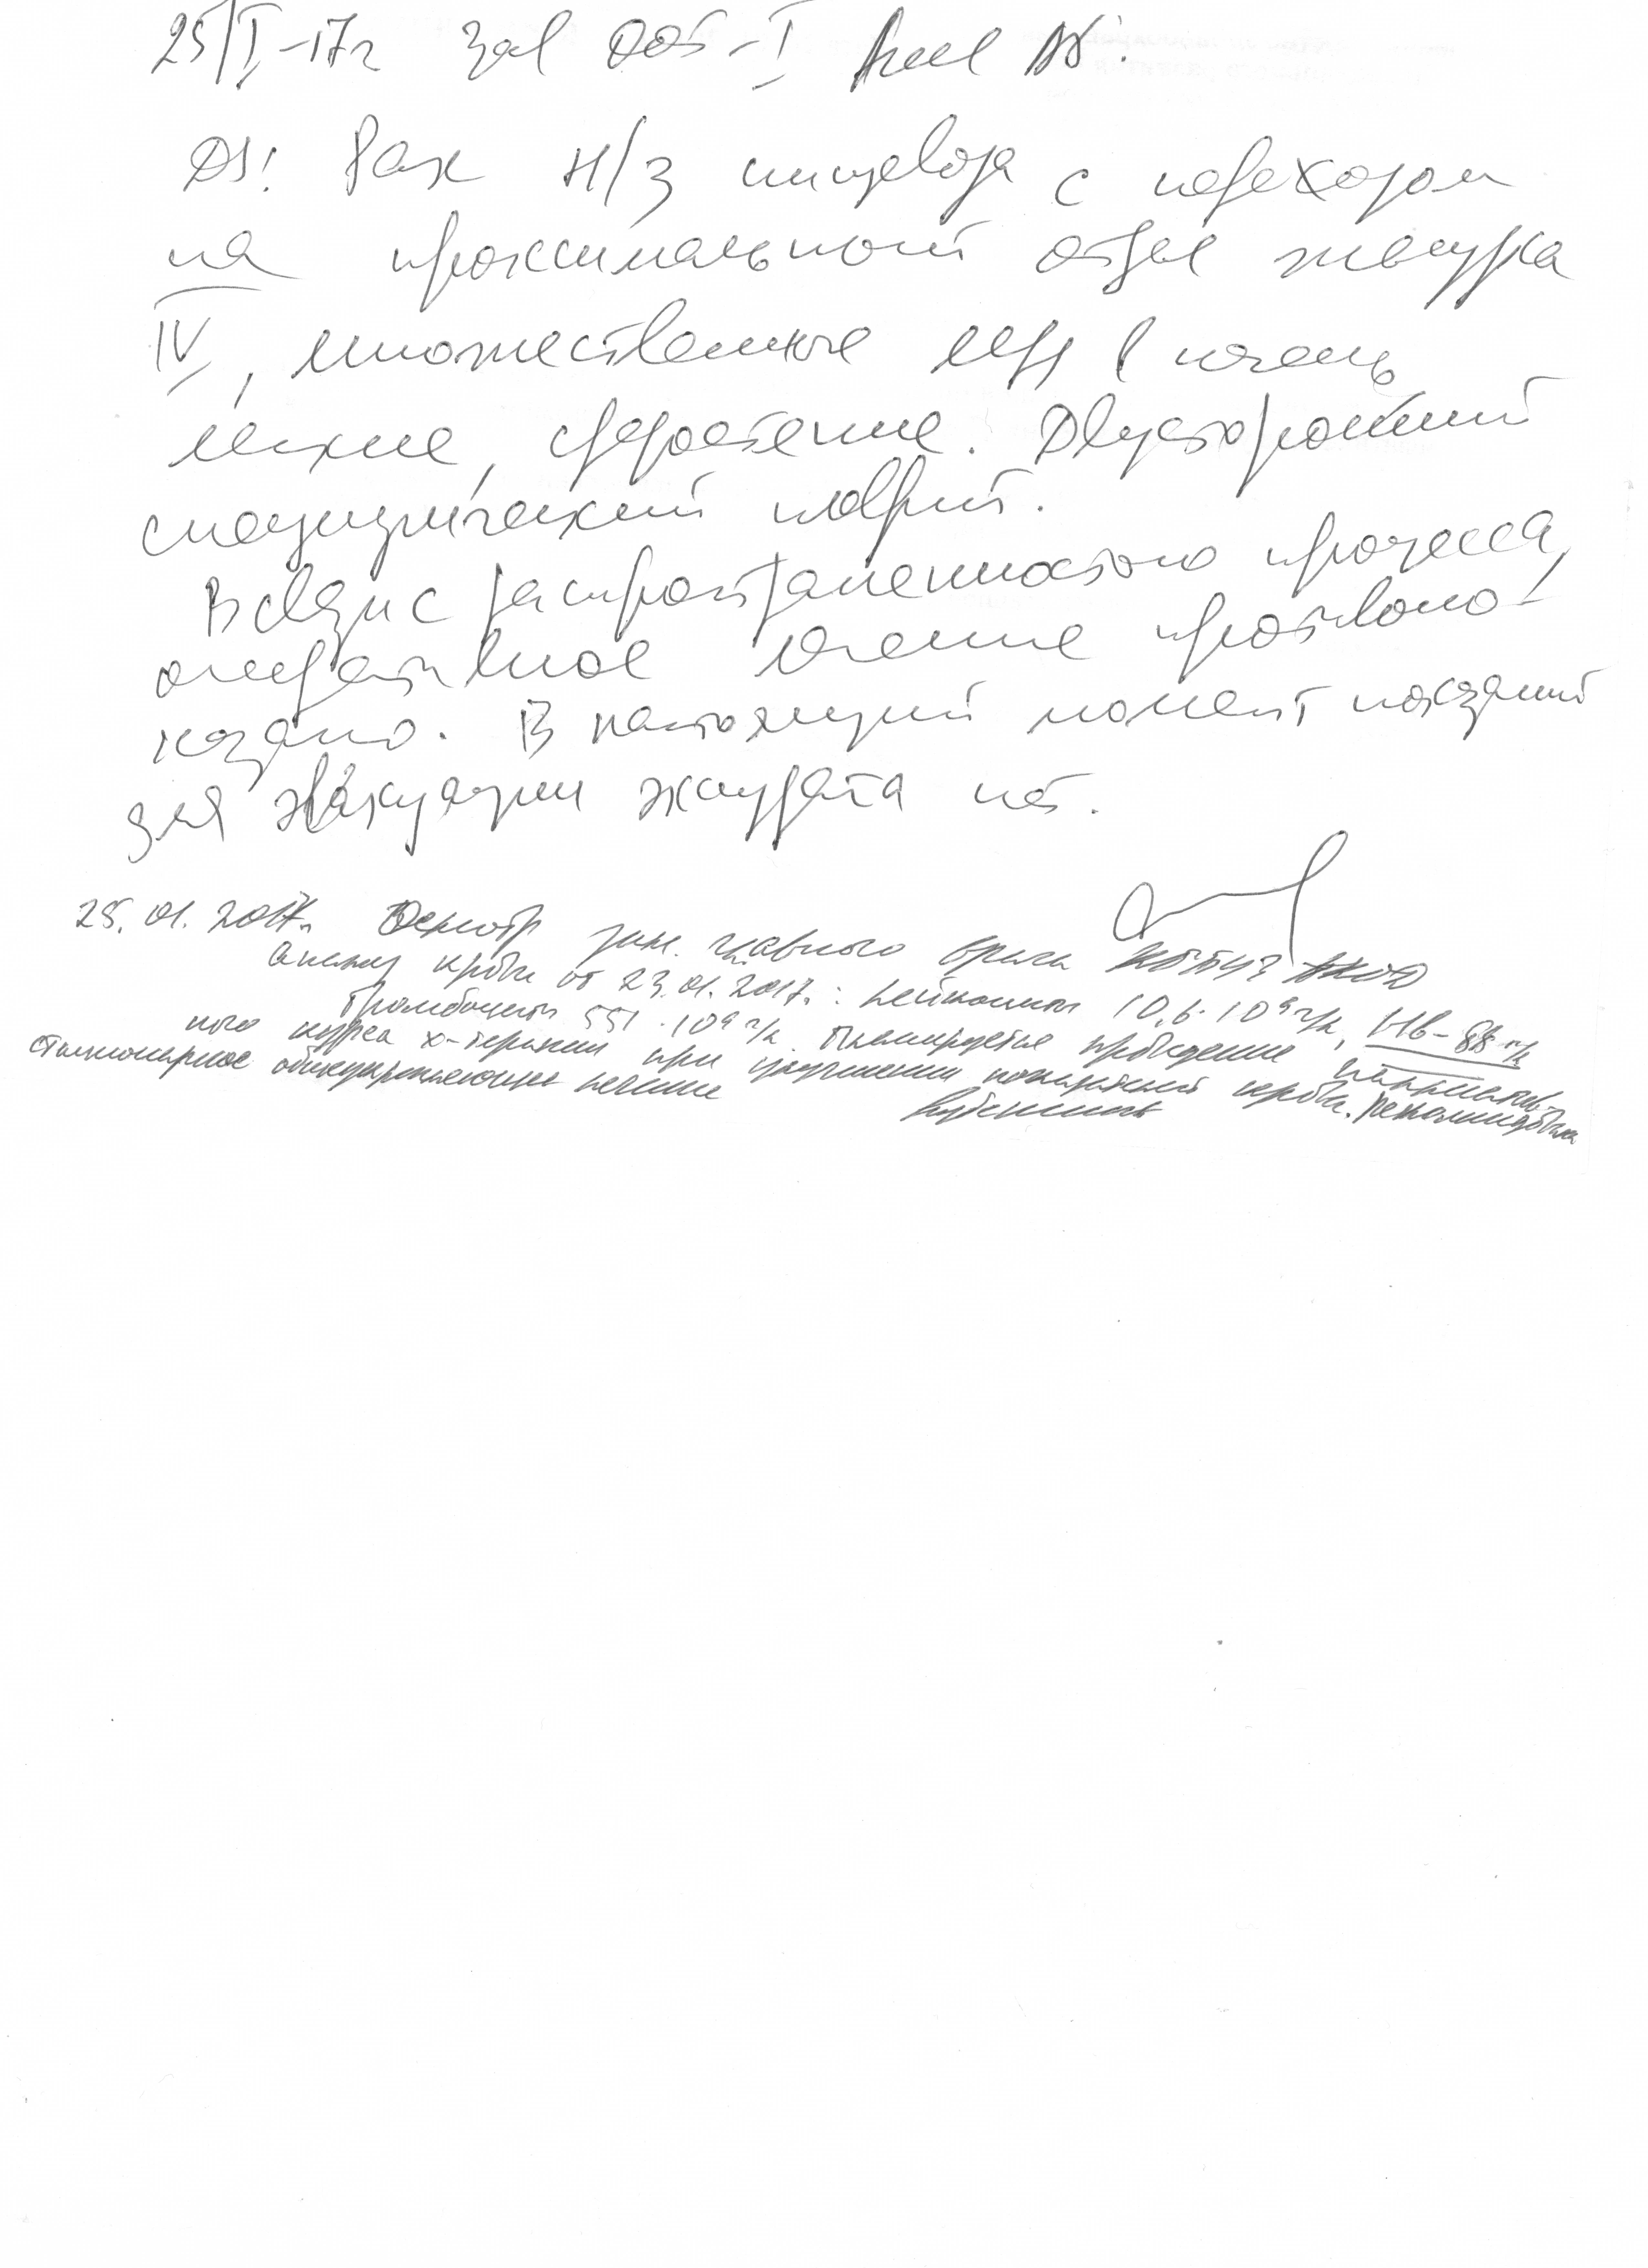 25/I-17г Зав ООБ-I
DS: Рак н/з пищевода с переходом
на проксимальный отдел желудка
IV, множественные mts в печень
легкие, средостение. Двусторонний
специфический плеврит.
В связи с распространенностью процесса,
оперативное лечение противопо-
казано. В настоящий момент показаний
для эвакуации экссудата нет.
25.01.2017г. Осмотр зам. главного врача
Анализ крови от 23.01.2017г.: лейкоциты 10,6·10⁹ г/л, Нb-88 г/л
тромбоциты 551·10⁹ г/л. Планируется проведение паллиатив-
ного курса х-терапии при улучшении показателей крови. Рекомендовано
стационарное общеукрепляющее лечение